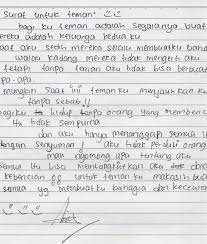 Surat untuk teman"
bagi ku teman adalah segaranya buat
mereka adalah keluarga kedua ku
saat aku sedih mereka selalu membuatku bah
walau kadang mereka tidak mengerti aku
tetapi tanpa teman aku tidak bisa berbuat
apa-apa.
mungkin Saat temanku menjauhkan ku
tanpa sebab!!
bagiku hidup tanpa orang yang membenc
itu tidak sempurna
dan aku hanya menanggapi semua it
dengan senyuman! aku tidak peduli orang
mau ngomong apa tentang aku
Semua itu bisa membangkitkan aku dar
kebencian untuk teman ku makasih bua
semua yg membuatku bahagia dan kecewa